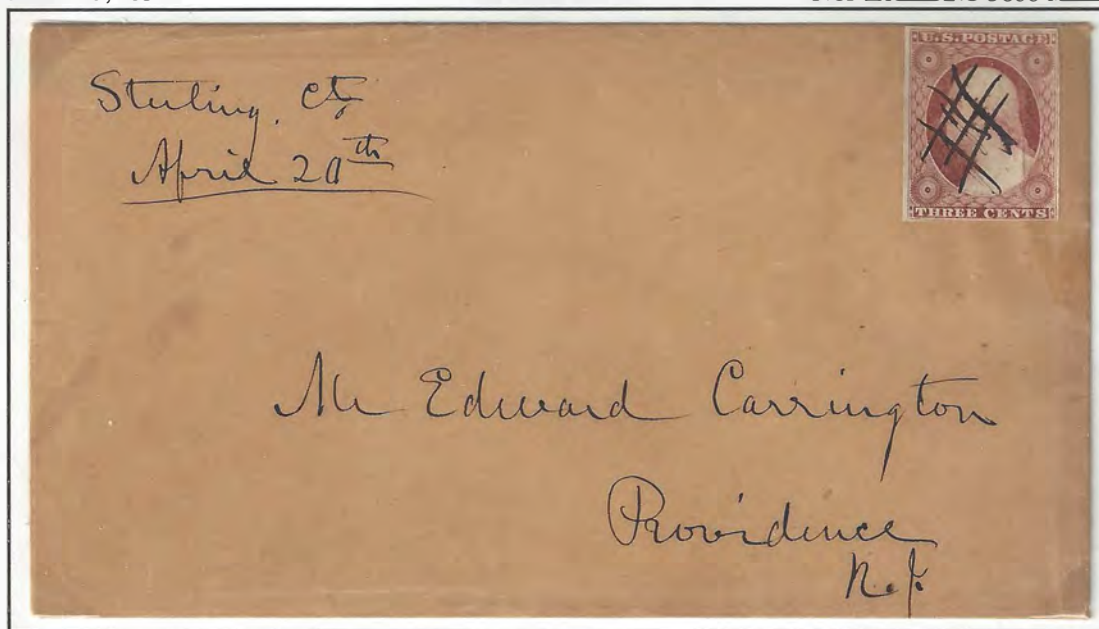 Sterling. Ct,
April 20th
U.S. POSTAGE
THREE CENTS
Mr Edward Carrington
Providence
R.I.